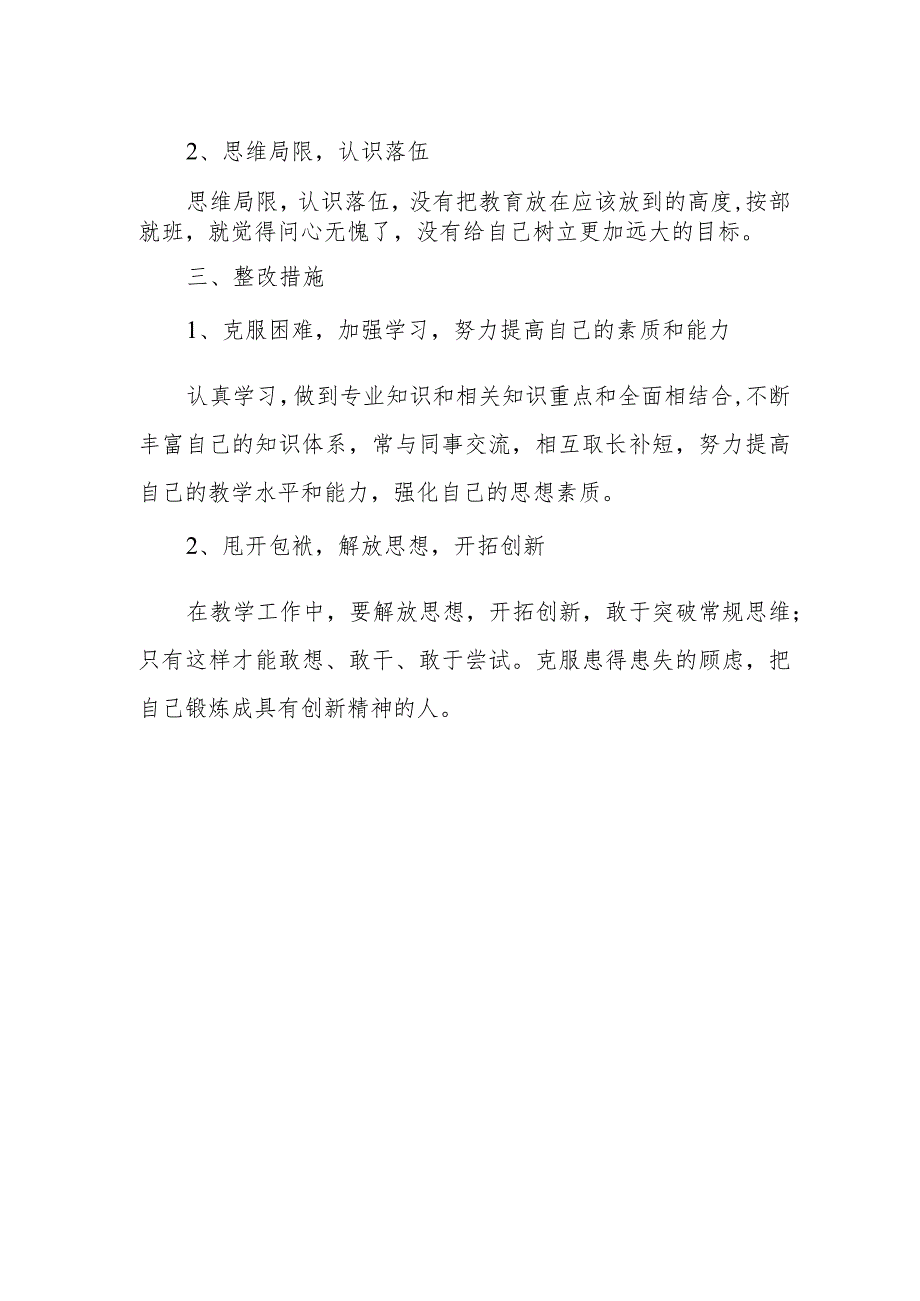 2、思维局限，认识落伍
思维局限，认识落伍，没有把教育放在应该放到的高度,按部
就班，就觉得问心无愧了，没有给自己树立更加远大的目标。
三、整改措施
1、克服困难，加强学习，努力提高自己的素质和能力
认真学习，做到专业知识和相关知识重点和全面相结合,不断
丰富自己的知识体系，常与同事交流，相互取长补短，努力提高
自己的教学水平和能力，强化自己的思想素质。
2、甩开包袱，解放思想，开拓创新
在教学工作中，要解放思想，开拓创新，敢于突破常规思维；
只有这样才能敢想、敢干、敢于尝试。克服患得患失的顾虑，把
自己锻炼成具有创新精神的人。